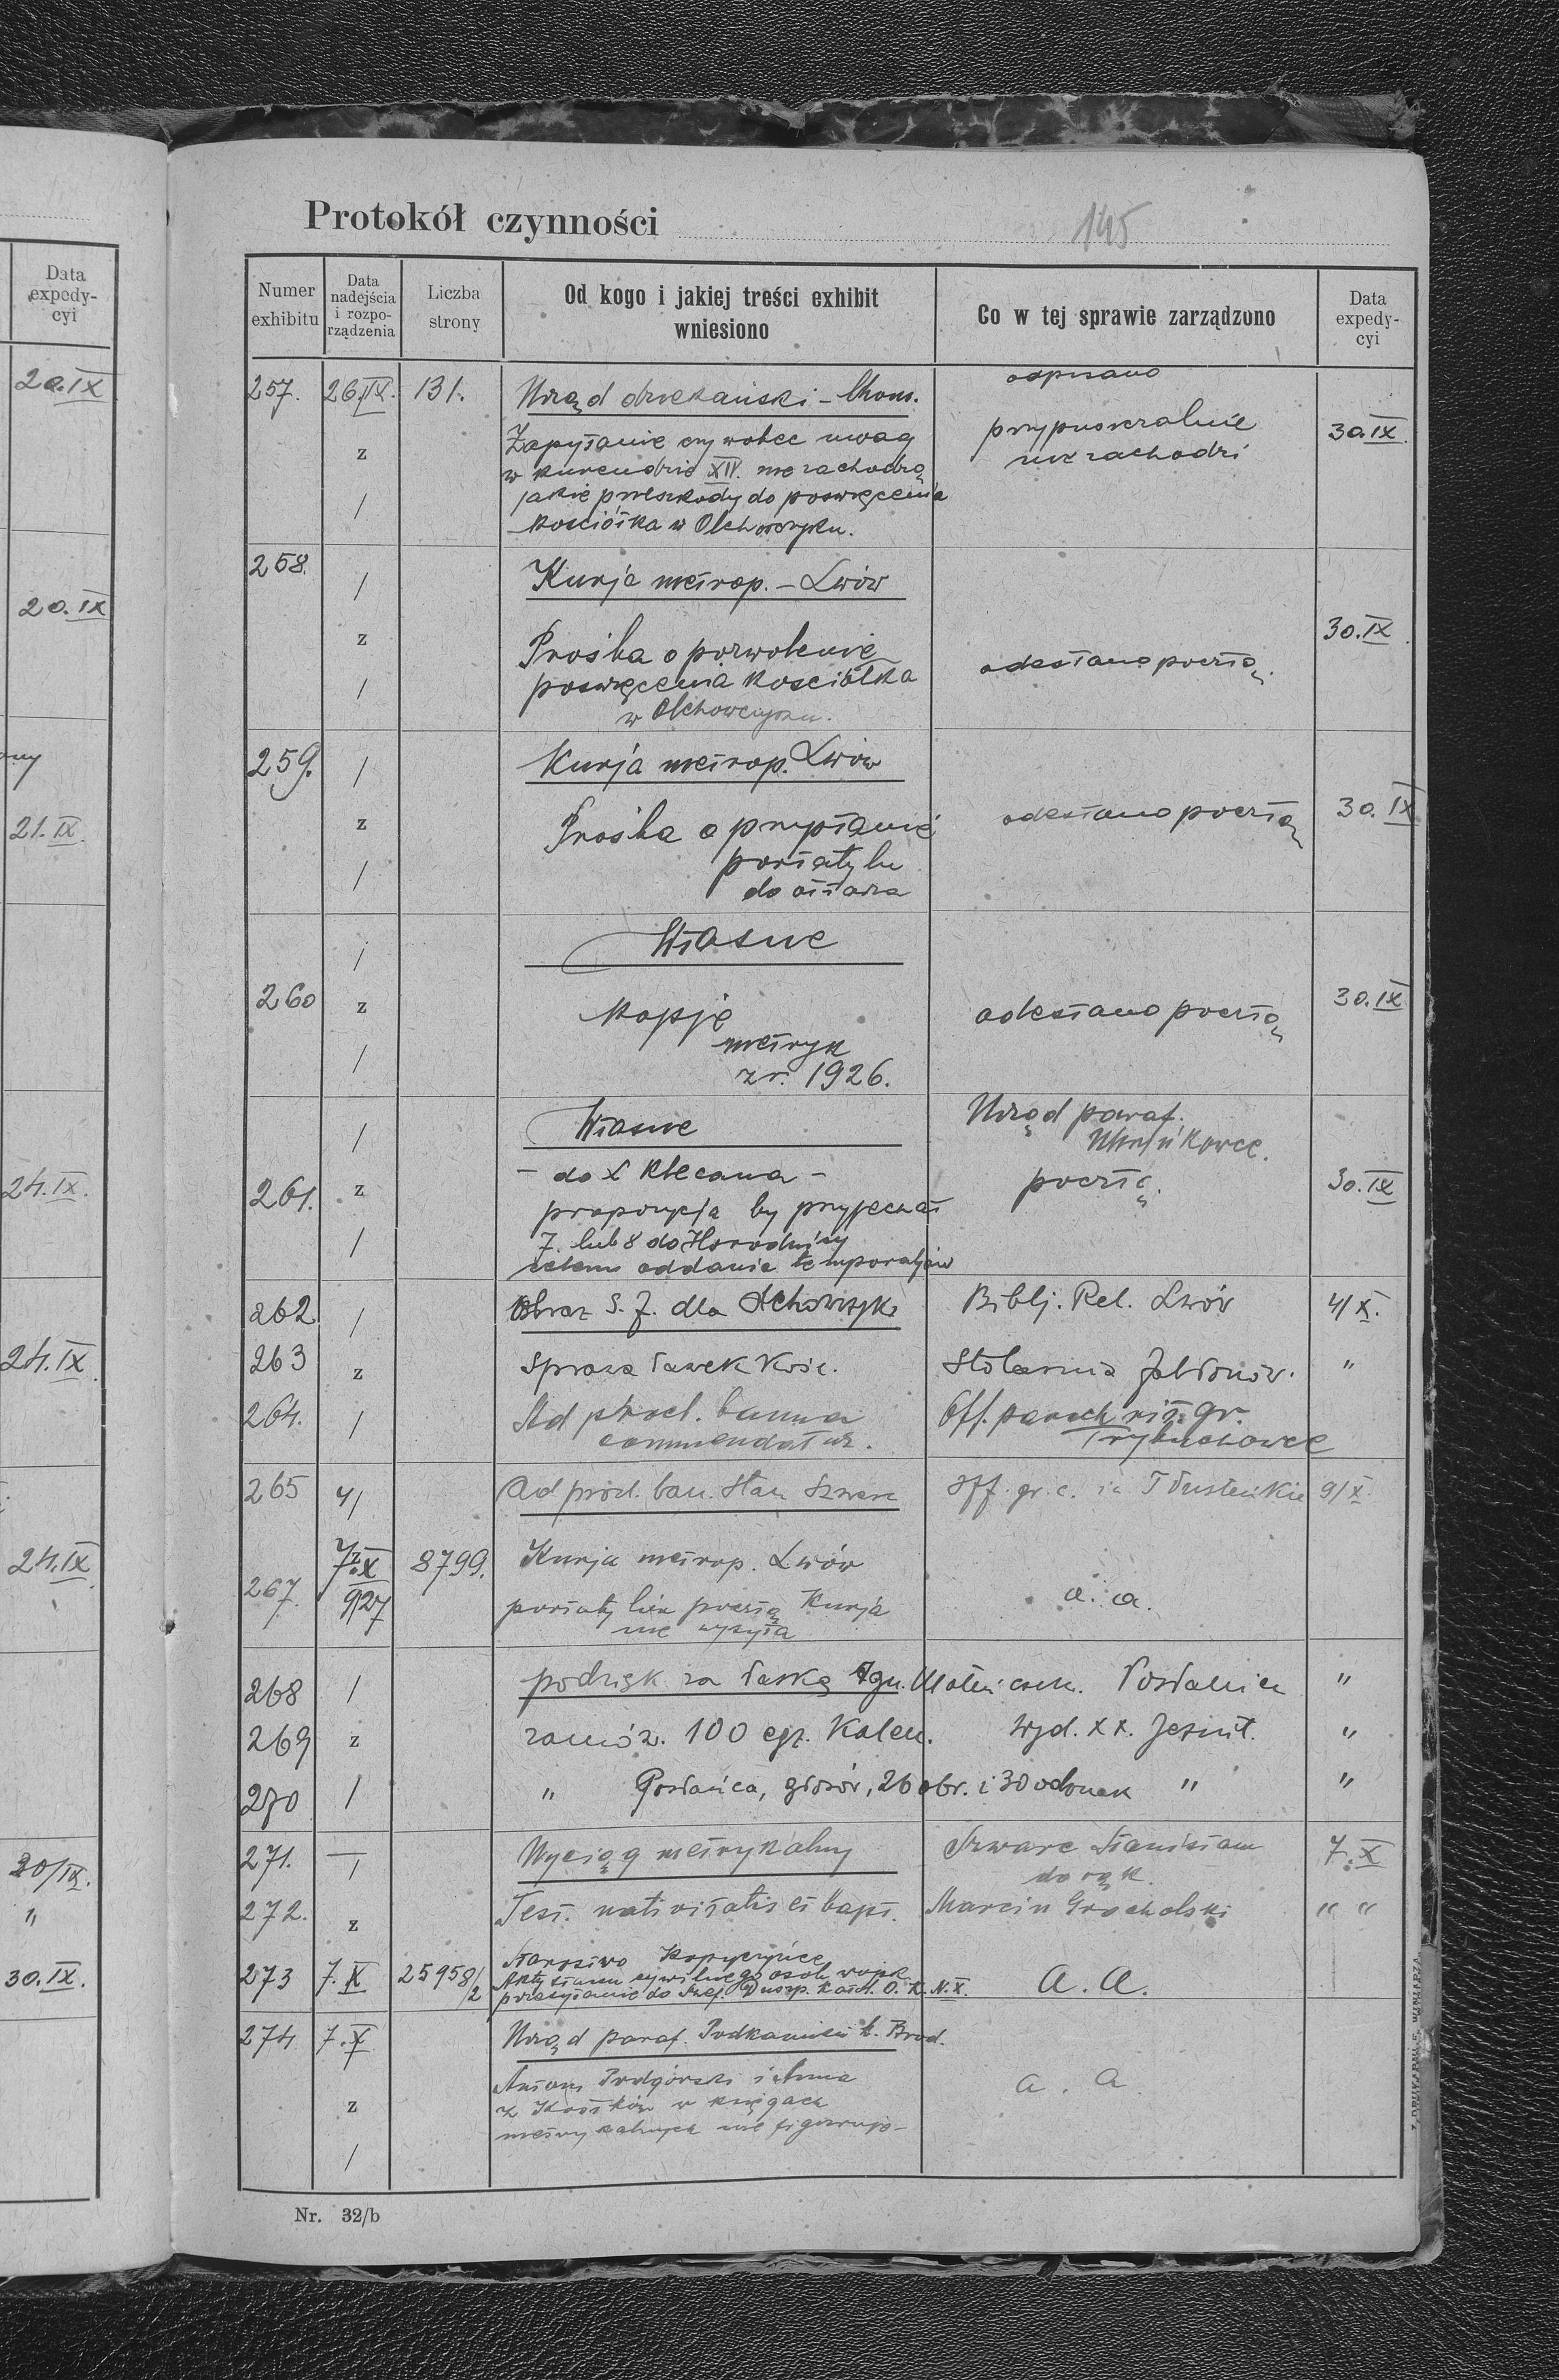 Data
expedy-
cyi
20.IX
20.IX
21.IX.
24.IX.
24.IX.
24.IX.
30/IX.
"
30.IX.
Protokół czynności
145
Numer
exhibitu
Data
nadejścia
i rozpo-
rządzenia
Liczba
strony
Od kogo i jakiej treści exhibit
wniesiono
Co w tej sprawie zarządzono
Data
expedy-
cyi
257. 26.IX. 131. Urząd dziekański –
Zapytanie czy wobec uwag
w kurendzie XII. nie zachodzą
jakie przeszkody do poświęcenia
kościółka w Olchowczyku.
odpisano
przypuszczalnie
nie zachodzi
30.IX.
z
/
258. / Kurja metrop. – Lwów
z Prośba o pozwolenie
/ poświęcenia kościółka
w Olchowczyku.
odesłano pocztą.
30.IX.
259. / Kurja metrop. Lwów
z Prośba o przysłanie
portatylu
/ do ołtarza
odesłano pocztą
30. IX
/ Własne
260 z kopje
/ metryk
z r. 1926.
odesłano pocztą
30.IX
/ Własne
– do X Klecana –
261. z propozycja by przyjechał
/ 7. lub 8 do Horodnicy
celem oddania temporaljów
Urząd paraf.
pocztą.
30.IX
262 / Obraz S. J. dla Olchowczyka Biblj. Rel. Lwów 4/X.
263 z Sprawa ławek Kośc. Stolarnia Jabłonów. "
264. / Ad procl. banna
commendatur.
Off. paroch rit. gr.
Trybuchowce
265 4/ Ad procl. ban. Stan Szwarc Off. gr. c. in Tłusteńkie 9/X.
267. 7.X 927 8799. Kurja metrop. Lwów
z portatylów pocztą Kurja
nie wysyła
a. a.
268 / podzięk za łaskę Posłaniec "
269 z zamów. 100 egz. Kalen. Wyd. XX. Jezuit. "
270 / " Posłańca, głosów, 26 obr. i 30 odznak " "
271. / Wyciąg metrykalny Szwarc Stanisław
do rąk.
7.X
272. z Test. nativitatis et bapt. Marcin Grocholski " "
273 7.X 25958/2 Starostwo Kopyczyńce
Akty stanu cywilnego osób wojsk.
przesyłanie do Szef. Duszp. Katol. O. K. N. X.
a. a.
274 7.X Urząd paraf. Podkamień k. Brod.
z Antoni Podgórski i Anna
z Kostków w księgach
/ metrykalnych nie figurują –
a. a
Nr. 32/b